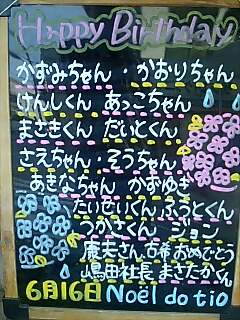 Happy Birthday
かずみちゃん・かおりちゃん
けんしくん あっこちゃん
まさきくん だいとくん
さえちゃん・そうちゃん
あきなちゃん かずゆき
たいせいくん ふうとくん
つかさくん ジョン
康夫さん 古希 おめでとう
嶋田社長 まさたかくん
6月16日 Noël do tio